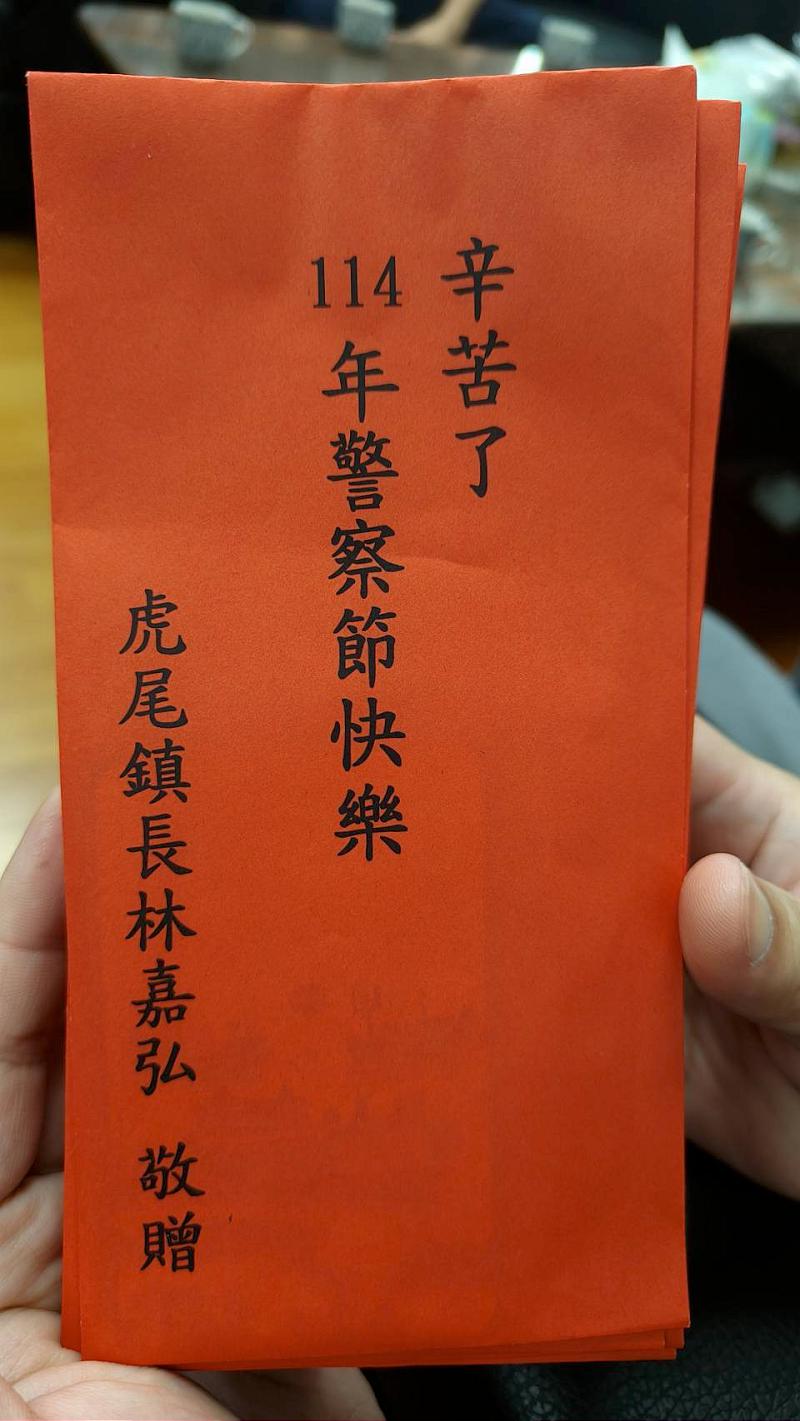 辛苦了
114年警察節快樂
虎尾鎮長林嘉弘 敬贈